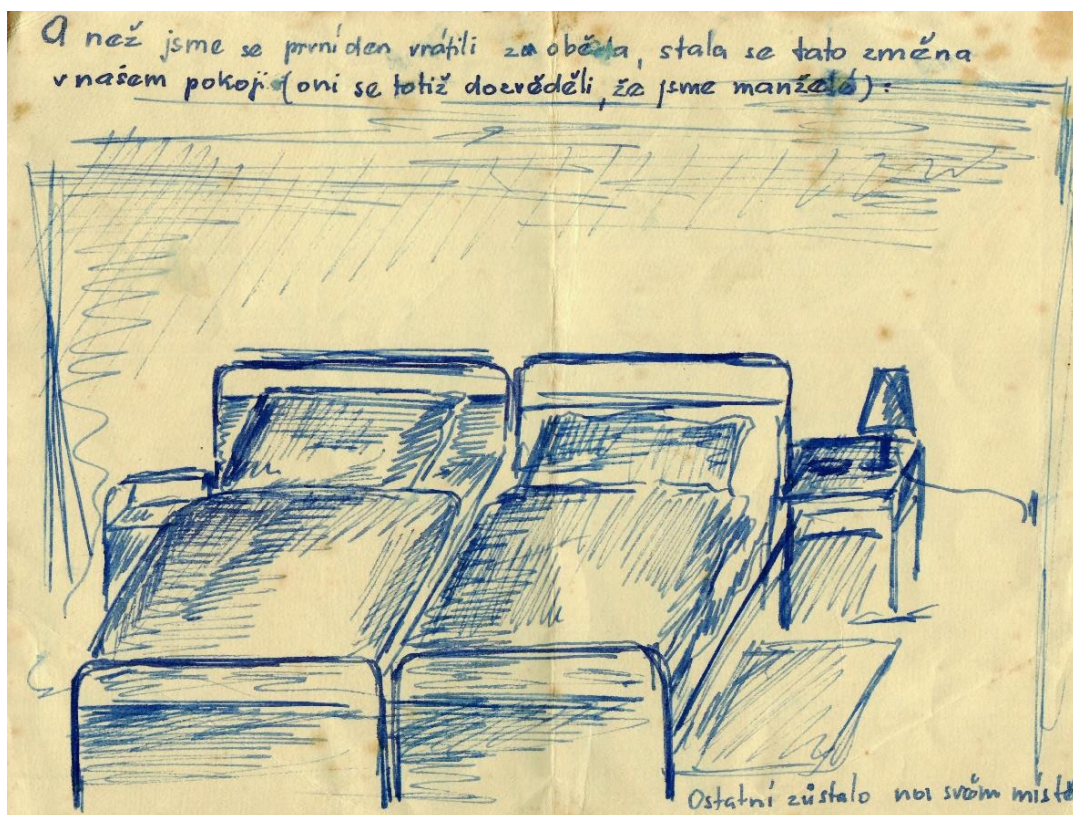 A než jsme se první den vrátili z oběda, stala se tato změna
v našem pokoji (oni se totiž dozvěděli, že jsme manželé):
Ostatní zůstalo na svém místě